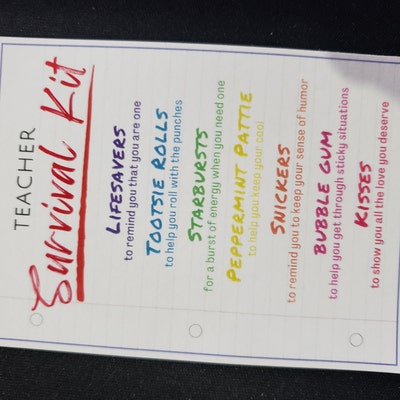 TEACHER
Survival Kit
LIFESAVERS
to remind you that you are one
TOOTSIE ROLLS
to help you roll with the punches
STARBURSTS
for a burst of energy when you need one
PEPPERMINT PATTIE
to help you keep your cool
SNICKERS
to remind you to keep your sense of humor
BUBBLE GUM
to help you get through sticky situations
KISSES
to show you all the love you deserve